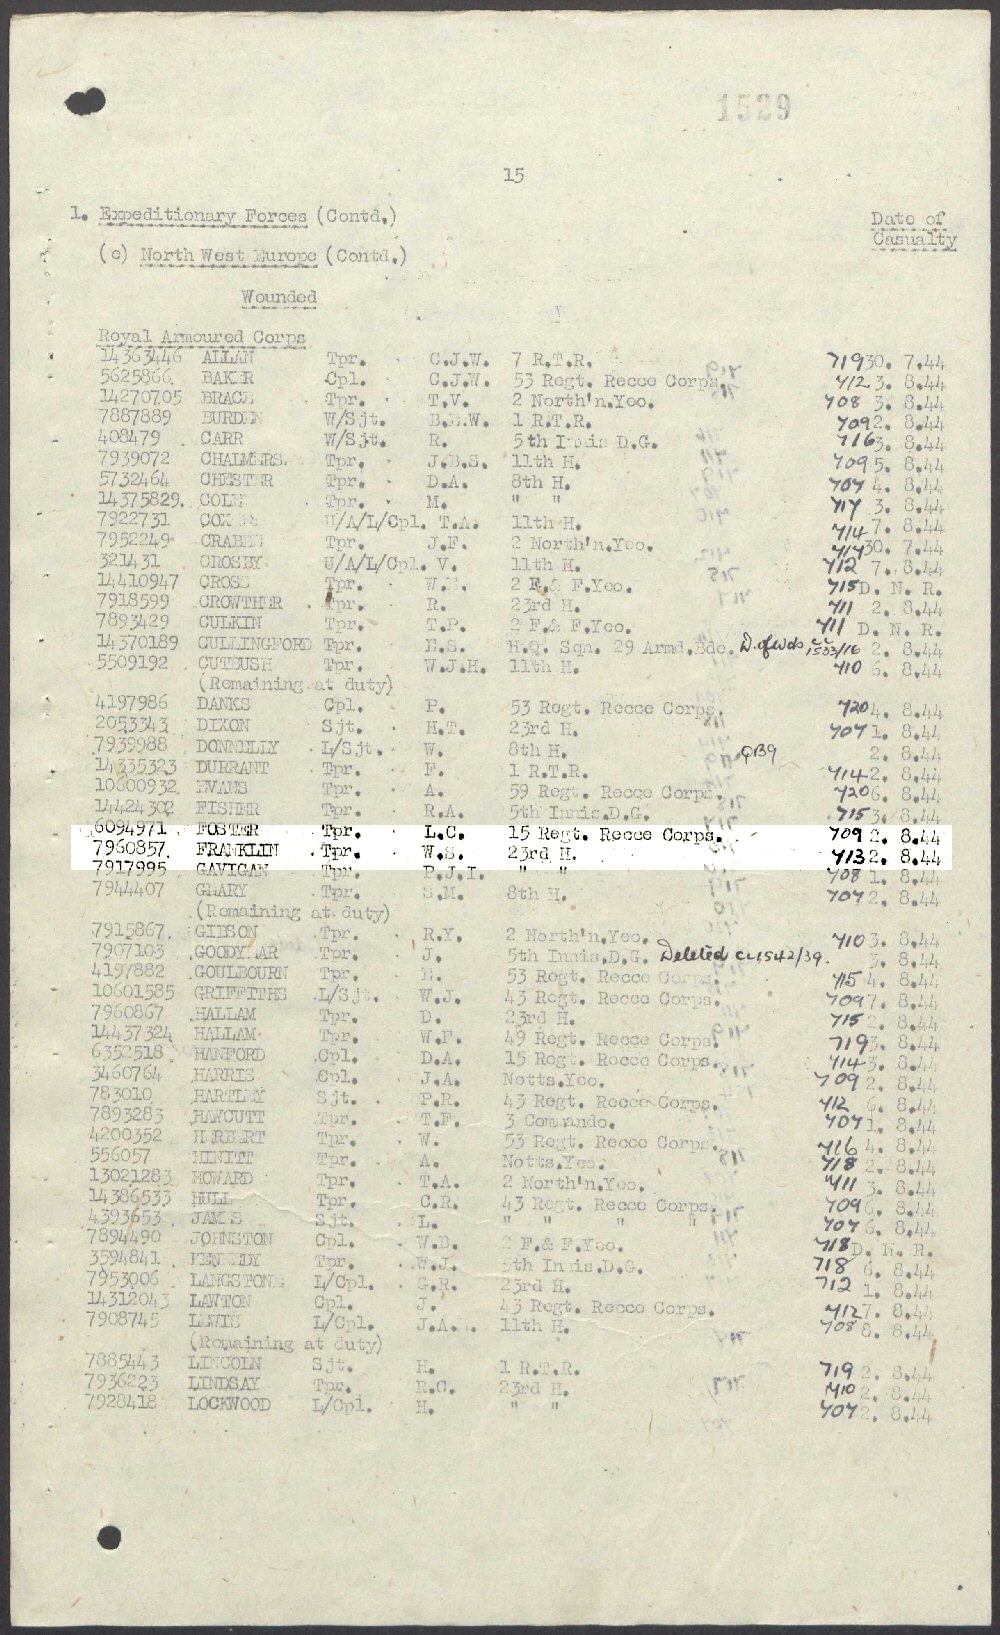 1529
15
1. Expeditionary Forces (Contd.)
Date of Casualty
(c) North West Europe (Contd.)
Wounded
Royal Armoured Corps
14363446 ALLAN Tpr. C.J.W. 7 R.T.R. 719 30. 7.44
5625866 BAKER Cpl. C.J.W. 53 Regt. Recce Corps. 712 3. 8.44
14270705 BRACE Tpr. T.V. 2 North'n.Yeo. 708 3. 8.44
7887889 BURDEN W/Sjt. W. 1 R.T.R. 709 2. 8.44
408479 CARR W/Sjt. R. 5th Innis D.G. 716 3. 8.44
7939072 CHALMERS. Tpr. J.B.S. 11th H. 709 5. 8.44
5732464 CHESTER Tpr. D.A. 8th H. 707 4. 8.44
14375829. COLE Tpr. M. " " 717 3. 8.44
7922731 U/A/L/Cpl. T.A. 11th H. 714 7. 8.44
7952249 Tpr. J.F. 2 North'n.Yeo. 717 30. 7.44
321431 CROSBY U/A/L/Cpl. V. 11th H. 712 7. 8.44
14410947 CROSS Tpr. 2 F.& F.Yeo. 715 D. N. R.
7918599 CROWTHER Tpr. R. 23rd H. 711 2. 8.44
7893429 CULKIN Tpr. T.P. 2 F.& F.Yeo. 711 D. N. R.
14370189 CULLINGFORD Tpr. H.S. H.Q. Sqn. 29 Armd.Bde. D. of Wds 1533/16 2. 8.44
5509192 CUTBUSH Tpr. W.J.H. 11th H. 710 6. 8.44
(Remaining at duty)
4197986 DANKS Cpl. P. 53 Regt. Recce Corps. 720 4. 8.44
2053343 DIXON Sjt. H.T. 23rd H. 707 1. 8.44
7939988 DONNELLY L/Sjt. W. 8th H. QB9 2. 8.44
14335323 DURRANT Tpr. F. 1 R.T.R. 714 2. 8.44
10600932 EVANS Tpr. A. 59 Regt. Recce Corps. 720 6. 8.44
14424302 FISHER Tpr. R.A. 5th Innis.D.G. 715 3. 8.44
6094971 FOSTER Tpr. L.C. 15 Regt. Recce Corps. 709 2. 8.44
7960857 FRANKLIN Tpr. W.S. 23rd H. 713 2. 8.44
7917995 GAVIGAN Tpr. P.J.I. " " 708 1. 8.44
7944407 GEARY Tpr. S.M. 8th H. 707 2. 8.44
(Remaining at duty)
7915867 GIBSON Tpr. R.Y. 2 North'n.Yeo. 710 3. 8.44
7907103 GOODYEAR Tpr. J. 5th Innis.D.G. Deleted CL 1542/39. 3. 8.44
4197882 GOULBOURN Tpr. 53 Regt. Recce Corps. 715 4. 8.44
10601585 GRIFFITHS L/Sjt. W.J. 43 Regt. Recce Corps. 709 7. 8.44
7960867 HALLAM Tpr. D. 23rd H. 715 2. 8.44
14437324 HALLAM Tpr. W.F. 49 Regt. Recce Corps. 719 3. 8.44
6352518 HANFORD Cpl. D.A. 15 Regt. Recce Corps. 714 3. 8.44
3460764 HARRIS Cpl. J.A. Notts.Yeo. 709 2. 8.44
783010 HARTLEY Sjt. P.R. 43 Regt. Recce Corps. 712 6. 8.44
7893283 HAWCUTT Tpr. T.F. 3 Commando. 707 1. 8.44
4200352 HERBERT Tpr. W. 53 Regt. Recce Corps. 716 4. 8.44
556057 HINITT Tpr. A. Notts.Yeo. 718 2. 8.44
13021283 HOWARD Tpr. T.A. 2 North'n.Yeo. 711 3. 8.44
14386533 HULL Tpr. C.R. 43 Regt. Recce Corps. 709 6. 8.44
4393653 JAMES Sjt. L. " " " " 707 6. 8.44
7894490 JOHNSTON Cpl. W.D. 2 F.& F.Yeo. 718 D. N. R.
3594841 KENNEDY Tpr. W.J. 5th Innis.D.G. 718 6. 8.44
7953006 LANGSTONE L/Cpl. G.R. 23rd H. 712 1. 8.44
14312043 LAWTON Cpl. J. 43 Regt. Recce Corps. 712 7. 8.44
7908745 LEWIS L/Cpl. J.A. 11th H. 708 8. 8.44
(Remaining at duty)
7885443 LINCOLN Sjt. H. 1 R.T.R. 719 2. 8.44
7936223 LINDSAY Tpr. R.C. 23rd H. 710 2. 8.44
7928418 LOCKWOOD L/Cpl. H. " " 707 2. 8.44